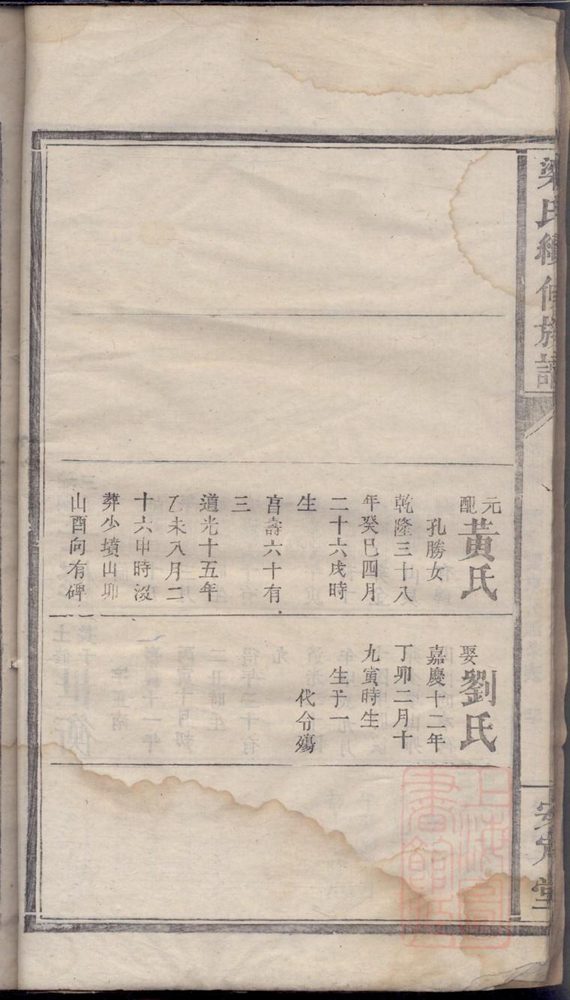 梁氏續修族譜
安定堂
元配黃氏
孔勝女
乾隆三十八
年癸巳四月
二十六戌時
生
亯壽六十有
三
道光十五年
乙未八月二
十六申時沒
葬少墳山卯
山酉向有碑
娶劉氏
嘉慶十二年
丁卯二月十
九寅時生
生子一
代令殤
上海圖書館藏